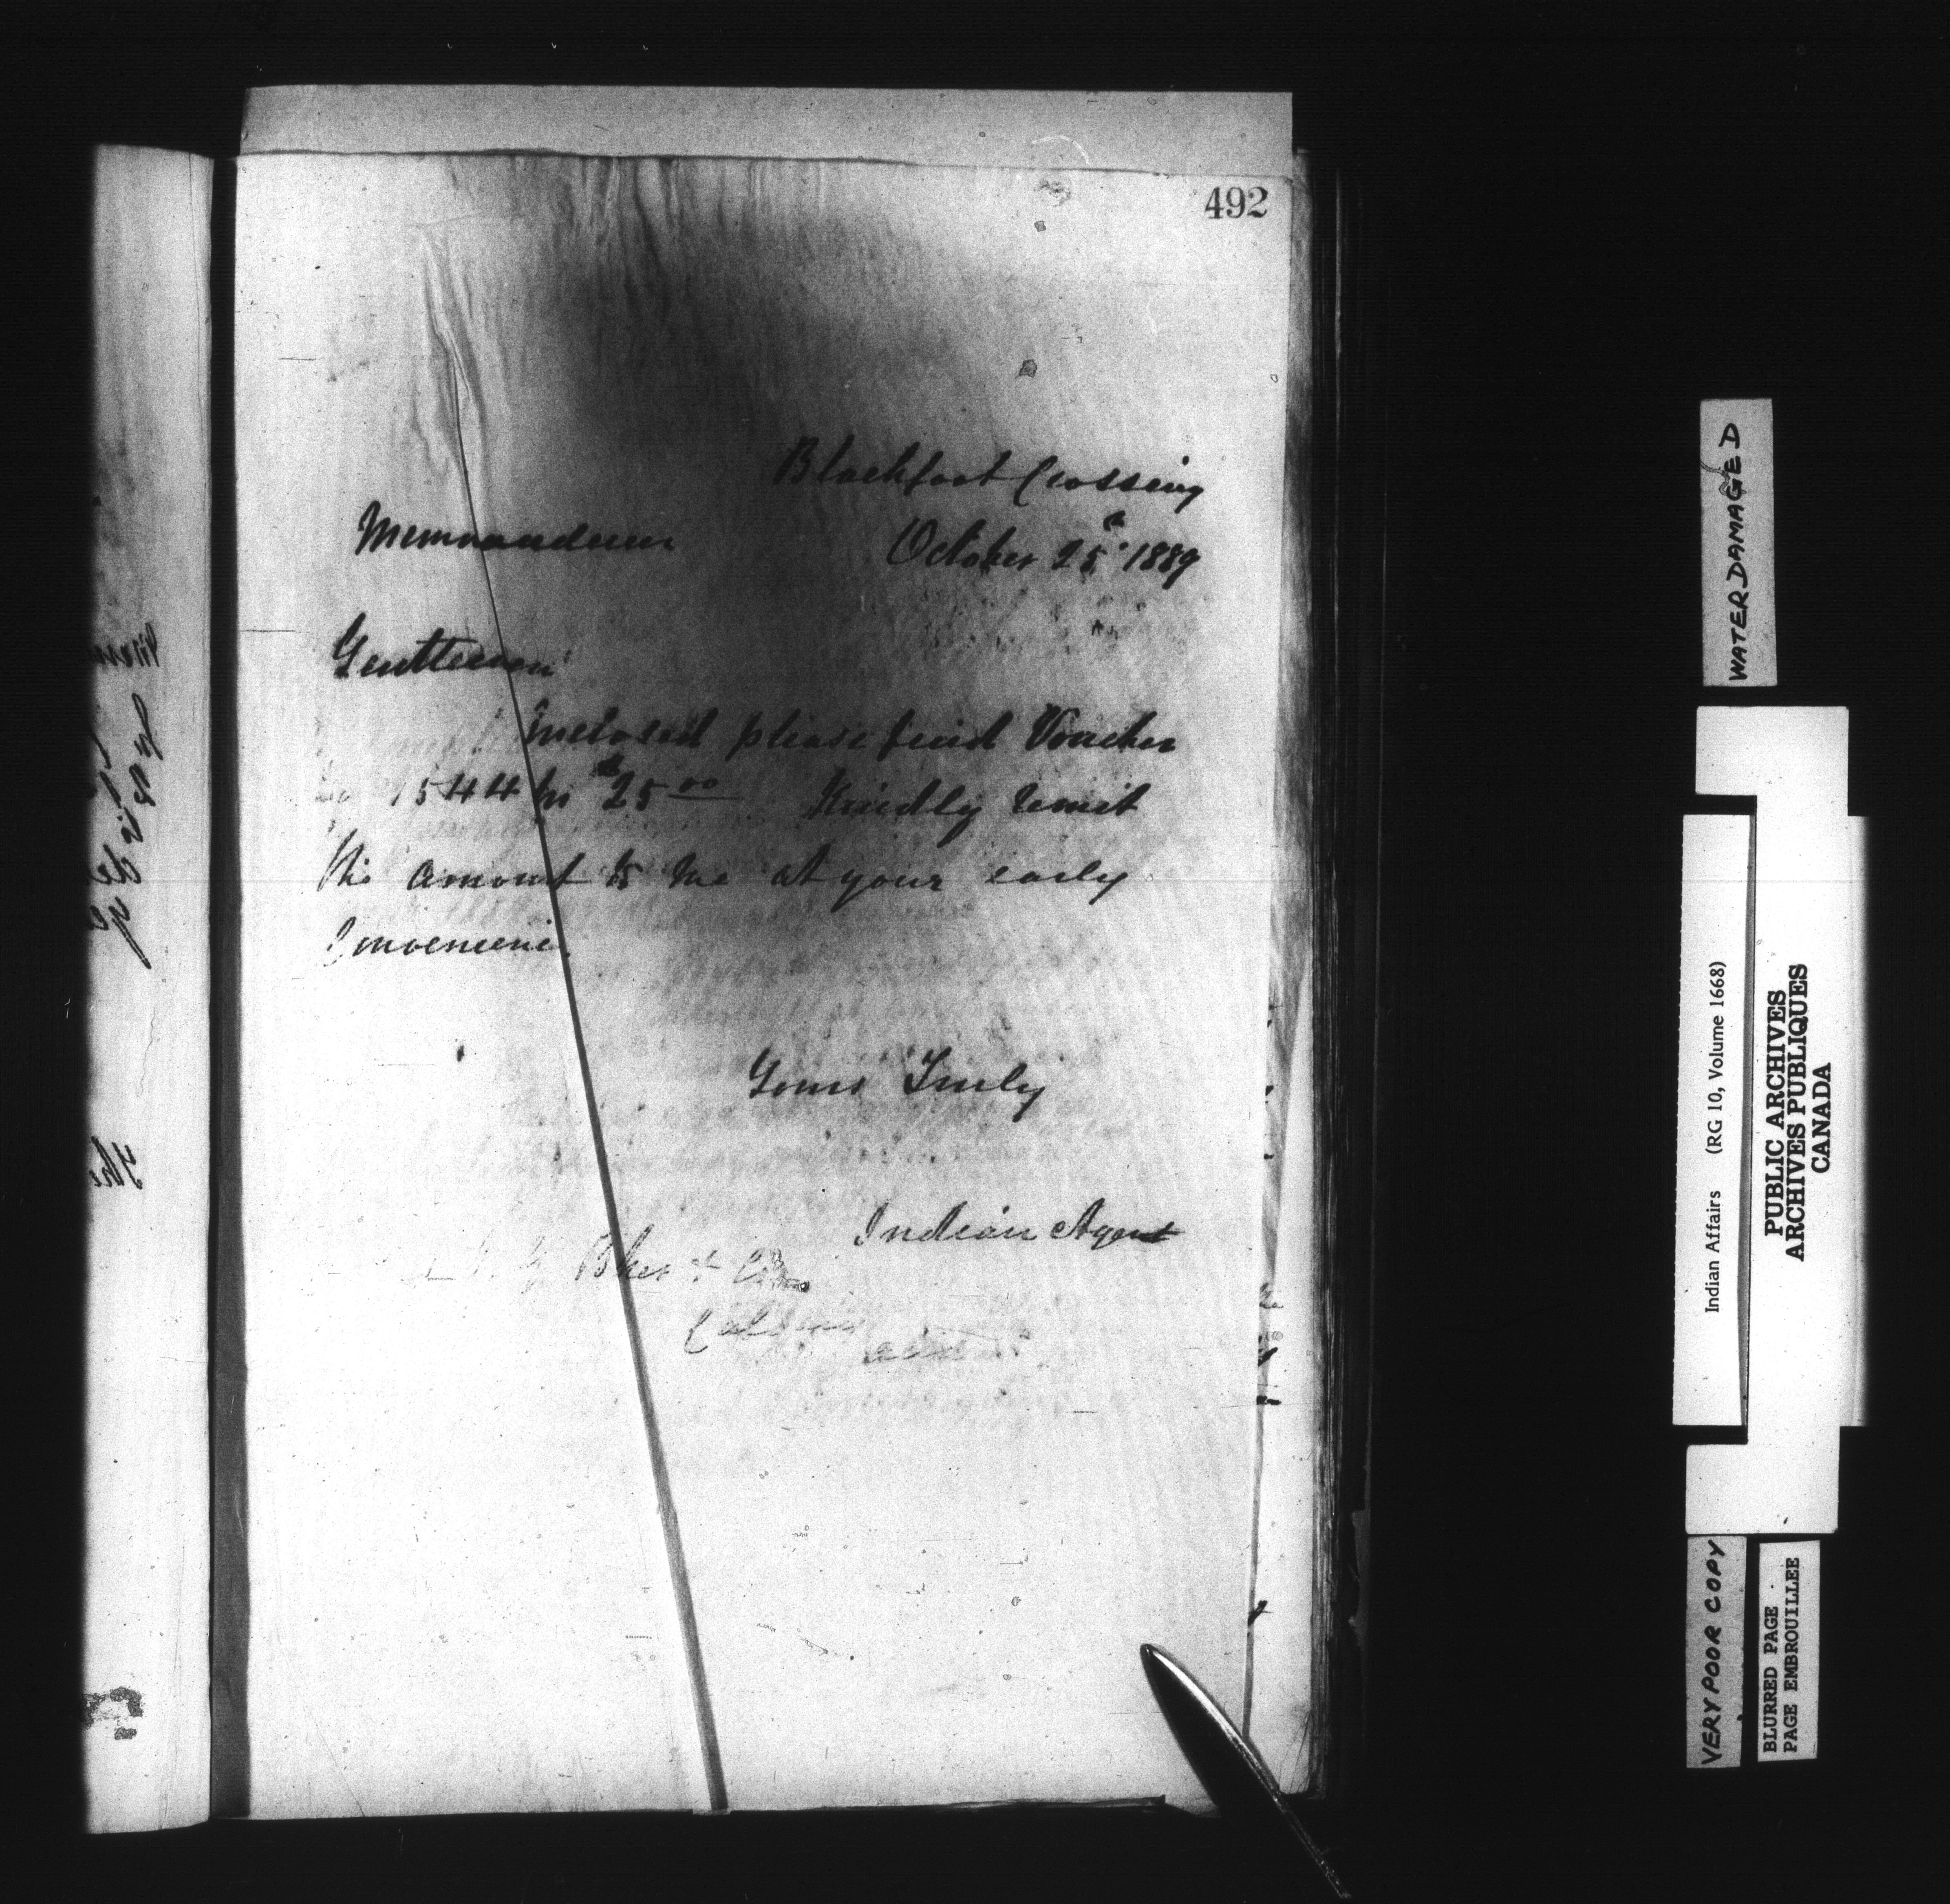 492
Blackfoot Crossing
Memorandum October 25th 1889
Gentlemen
Inclosed please find Voucher
1544 for $25.00 Kindly remit
the amount to me at your early
Convenience
Yours Truly
Indian Agent
Baker & Co
Calgary
Alta
WATER DAMAGED
Indian Affairs (RG 10, Volume 1668)
PUBLIC ARCHIVES
ARCHIVES PUBLIQUES
CANADA
VERY POOR COPY
BLURRED PAGE
PAGE EMBROUILLEE